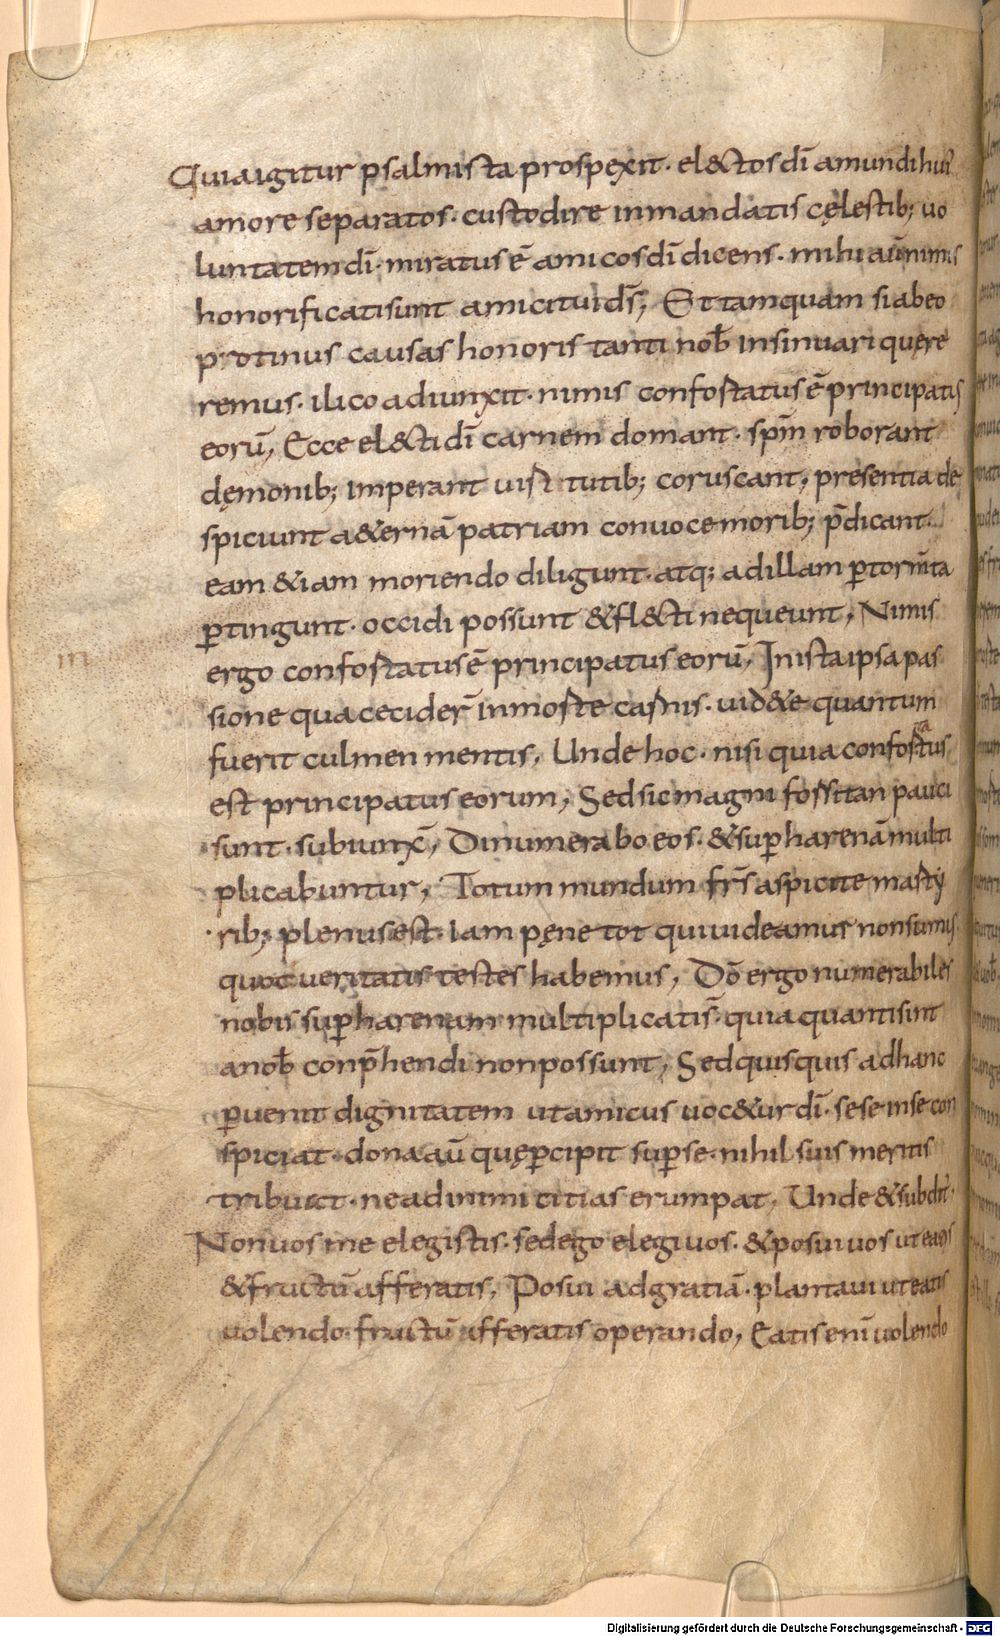 Quia igitur psalmista prospexit · el&ctos dī a mundi hui᾽
amore separatos · custodire in mandatis cęlestib; uo
luntatem dī · miratus ē amicos dī dicens · mihi aū nimis
honorificati sunt amici tui ds̄; Et tamquam si ab eo
protinus causas honoris tanti nob̄ insinuari quęre
remus · ilico adiunxit · nimis confortatus ē principatis
eorū, Ecce el&cti dī carnem domant · spm̄ roborant
dęmonib; imperant uirtutib; coruscant, presentia de
spiciunt a&ernā patriam con uoce morib; p̄dicant·
eam &iam moriendo diligunt · atq; ad illam ꝑtorm̄ta
ꝑtingunt · occidi possunt & fl&cti nequeunt, Nimis
ergo confortatus ē principatus eorū, In ista ipsa pas
m
sione qua cecider̄ in morte carnis · uid&e quantum
fuerit culmen mentis, Unde hoc · nisi quia confortatus
est principatus eorum, Sed sic magni forsitan pauci
sunt · subiunx̄, Dinumerabo eos · & suꝑ harenā multi
plicabuntur, Totum mundum fr̄s aspicite marty
rib; plenus est · Iam pęne tot qui uideamus non sumus·
quot ueritatis testes habemus, Dō ergo numerabiles
nobis suꝑ harenam multiplicatis̄ · quia quanti sint
a nob̄ conp̄hendi non possunt, Sed quisquis ad hanc
ꝑuenit dignitatem ut amicus uoc&ur dī · sese in se con
spiciat · dona aū quę ꝑcipit suꝑ se · nihil suis meritis
tribuat · ne ad inimicitias erumpat, Unde & subdit̄·
Non uos me elegistis · sed ego elegi uos · & posui uos ut eatis
& fructū afferatis, Posui ad gratiā · plantaui ut eatis
uolendo · fructū afferatis operando, Eatis enī uolendo
Digitalisierung gefördert durch die Deutsche Forschungsgemeinschaft - DFG